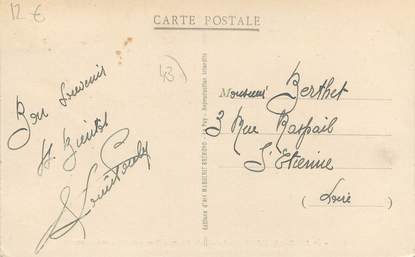 12 €
CARTE POSTALE
43
Bon Souvenir
Monsieur Berthet
3 Rue Raspail
St Etienne
(Loire)
Editions d'Art MARGERIT-BRÉMOND - Le Puy - Reproduction interdite